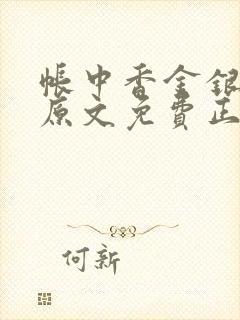 帳中香金銀
原文免費正
何新